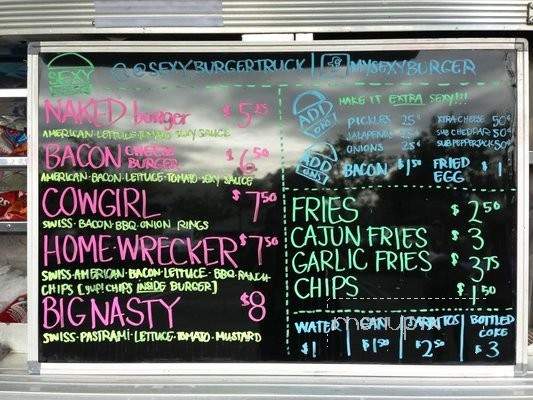 SEXY
@SEXYBURGERTRUCK | MYSEXYBURGER
NAKED burger $5.25
AMERICAN·LETTUCE·TOMATO·SEXY SAUCE
BACON CHEESE BURGER $6.50
AMERICAN·BACON·LETTUCE·TOMATO·SEXY SAUCE
COWGIRL $7.50
SWISS·BACON·BBQ·ONION RINGS
HOMEWRECKER $7.50
SWISS·AMERICAN·BACON·LETTUCE·BBQ·RANCH
CHIPS [yup! CHIPS INSIDE BURGER]
BIG NASTY $8
SWISS·PASTRAMI·LETTUCE·TOMATO·MUSTARD
MAKE IT EXTRA SEXY!!!
ADD ONS!
PICKLES 25¢ XTRA CHEESE 50¢
JALAPENOS 25¢ SUB CHEDDAR 50¢
ONIONS 25¢ SUB PEPPERJACK 50¢
ADD ONS!
BACON $1.50 FRIED EGG $1
FRIES $2.50
CAJUN FRIES $3
GARLIC FRIES $3.75
CHIPS $1.50
WATER $1
CAN $1.50
JARRITOS $2.50
BOTTLED COKE $3
menupix